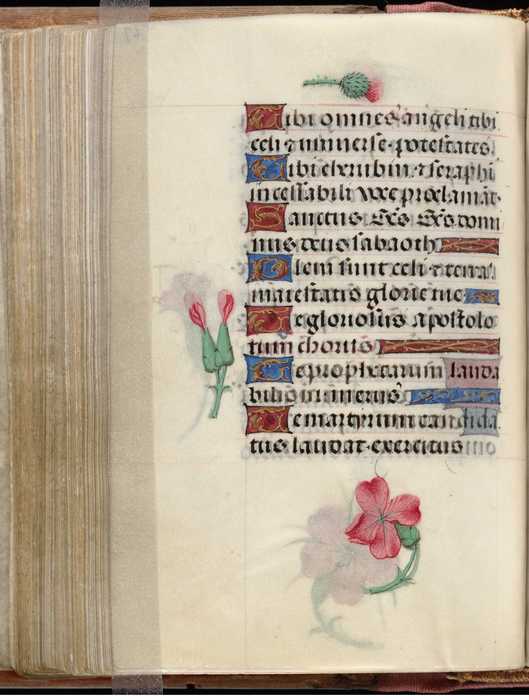 Tibi omnes angeli tibi
celi ⁊ universe potestates
Tibi cherubin ⁊ seraphi
incessabili voce proclamāt
Sanctus Sc̄s Sc̄s domi
nus deus sabaoth
Pleni sunt celi ⁊ terra
maiestatis glorie tue
Te gloriosus apostolo
rum chorus
Te prophetarum lauda
bilis numerus
Te martyrum candida
tus laudat exercitus